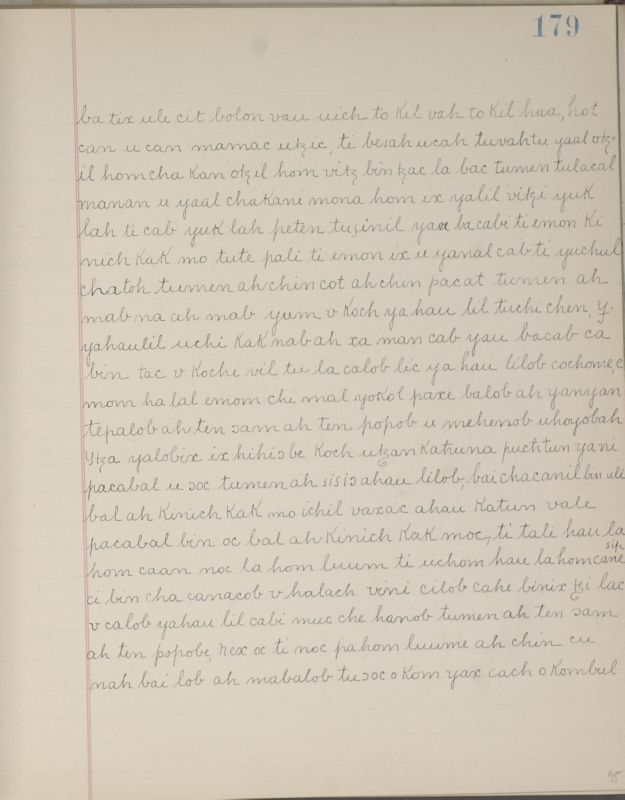 179
ba tix uli cit bolon vau uich to Kil vah to Kil haa, hot
can u can mamac utzic, ti besah ucah tuvahtu yaal otz-
il homcha Kan otzil hom vitz bin tzac la bac tumen tulacal
manan u yaal chakani mona hom ix yalil vitzi yuk
lah ti cab yuk lah peten tuzinil yau bacabi ti emon Ki
nich KaK mo tute pali ti emon ix u yanal cab ti yuchul
chatoh tumen ahchin cot ahchin pacat tumen ah
mab na ah mab yum v Koch ya hau lil tuchi chen, y.
yahaulil uchi KaK nab ah xa man cab yau bacab ca
bin tac v Kochi vil tu la calob lic ya hau lilob cochome, c
mom ha lal emom che mal yoKol paxe balob ah yanyan
tepalob ah ten ɔam ah ten popob u mehenob uhoyobah
Ytza yalobix ix hihiɔbe Koch utzan Katuna puch tun yani
pacabal u ɔoc tumen ah sisiɔ ahau lilob, bai chacanil bin uli
bal ah Kinich KaK mo ichil vaxac ahau Katun vale
pacabal bin oc bal ah Kinich KaK moc, ti tali hau la
hom caan noc la hom luum ti uchom hau lahomcane
sip
ci bin cha canacob v halach vini cilob cahe binix tzi lac
v calob yahau lil cabi muc che hanob tumen ah ten ɔam
ah ten popobe, Nex oc ti noc pahom luume ah chin cu
nah bai lob ah mabalob tu ɔoc o Kom yax cach o Kombul
95